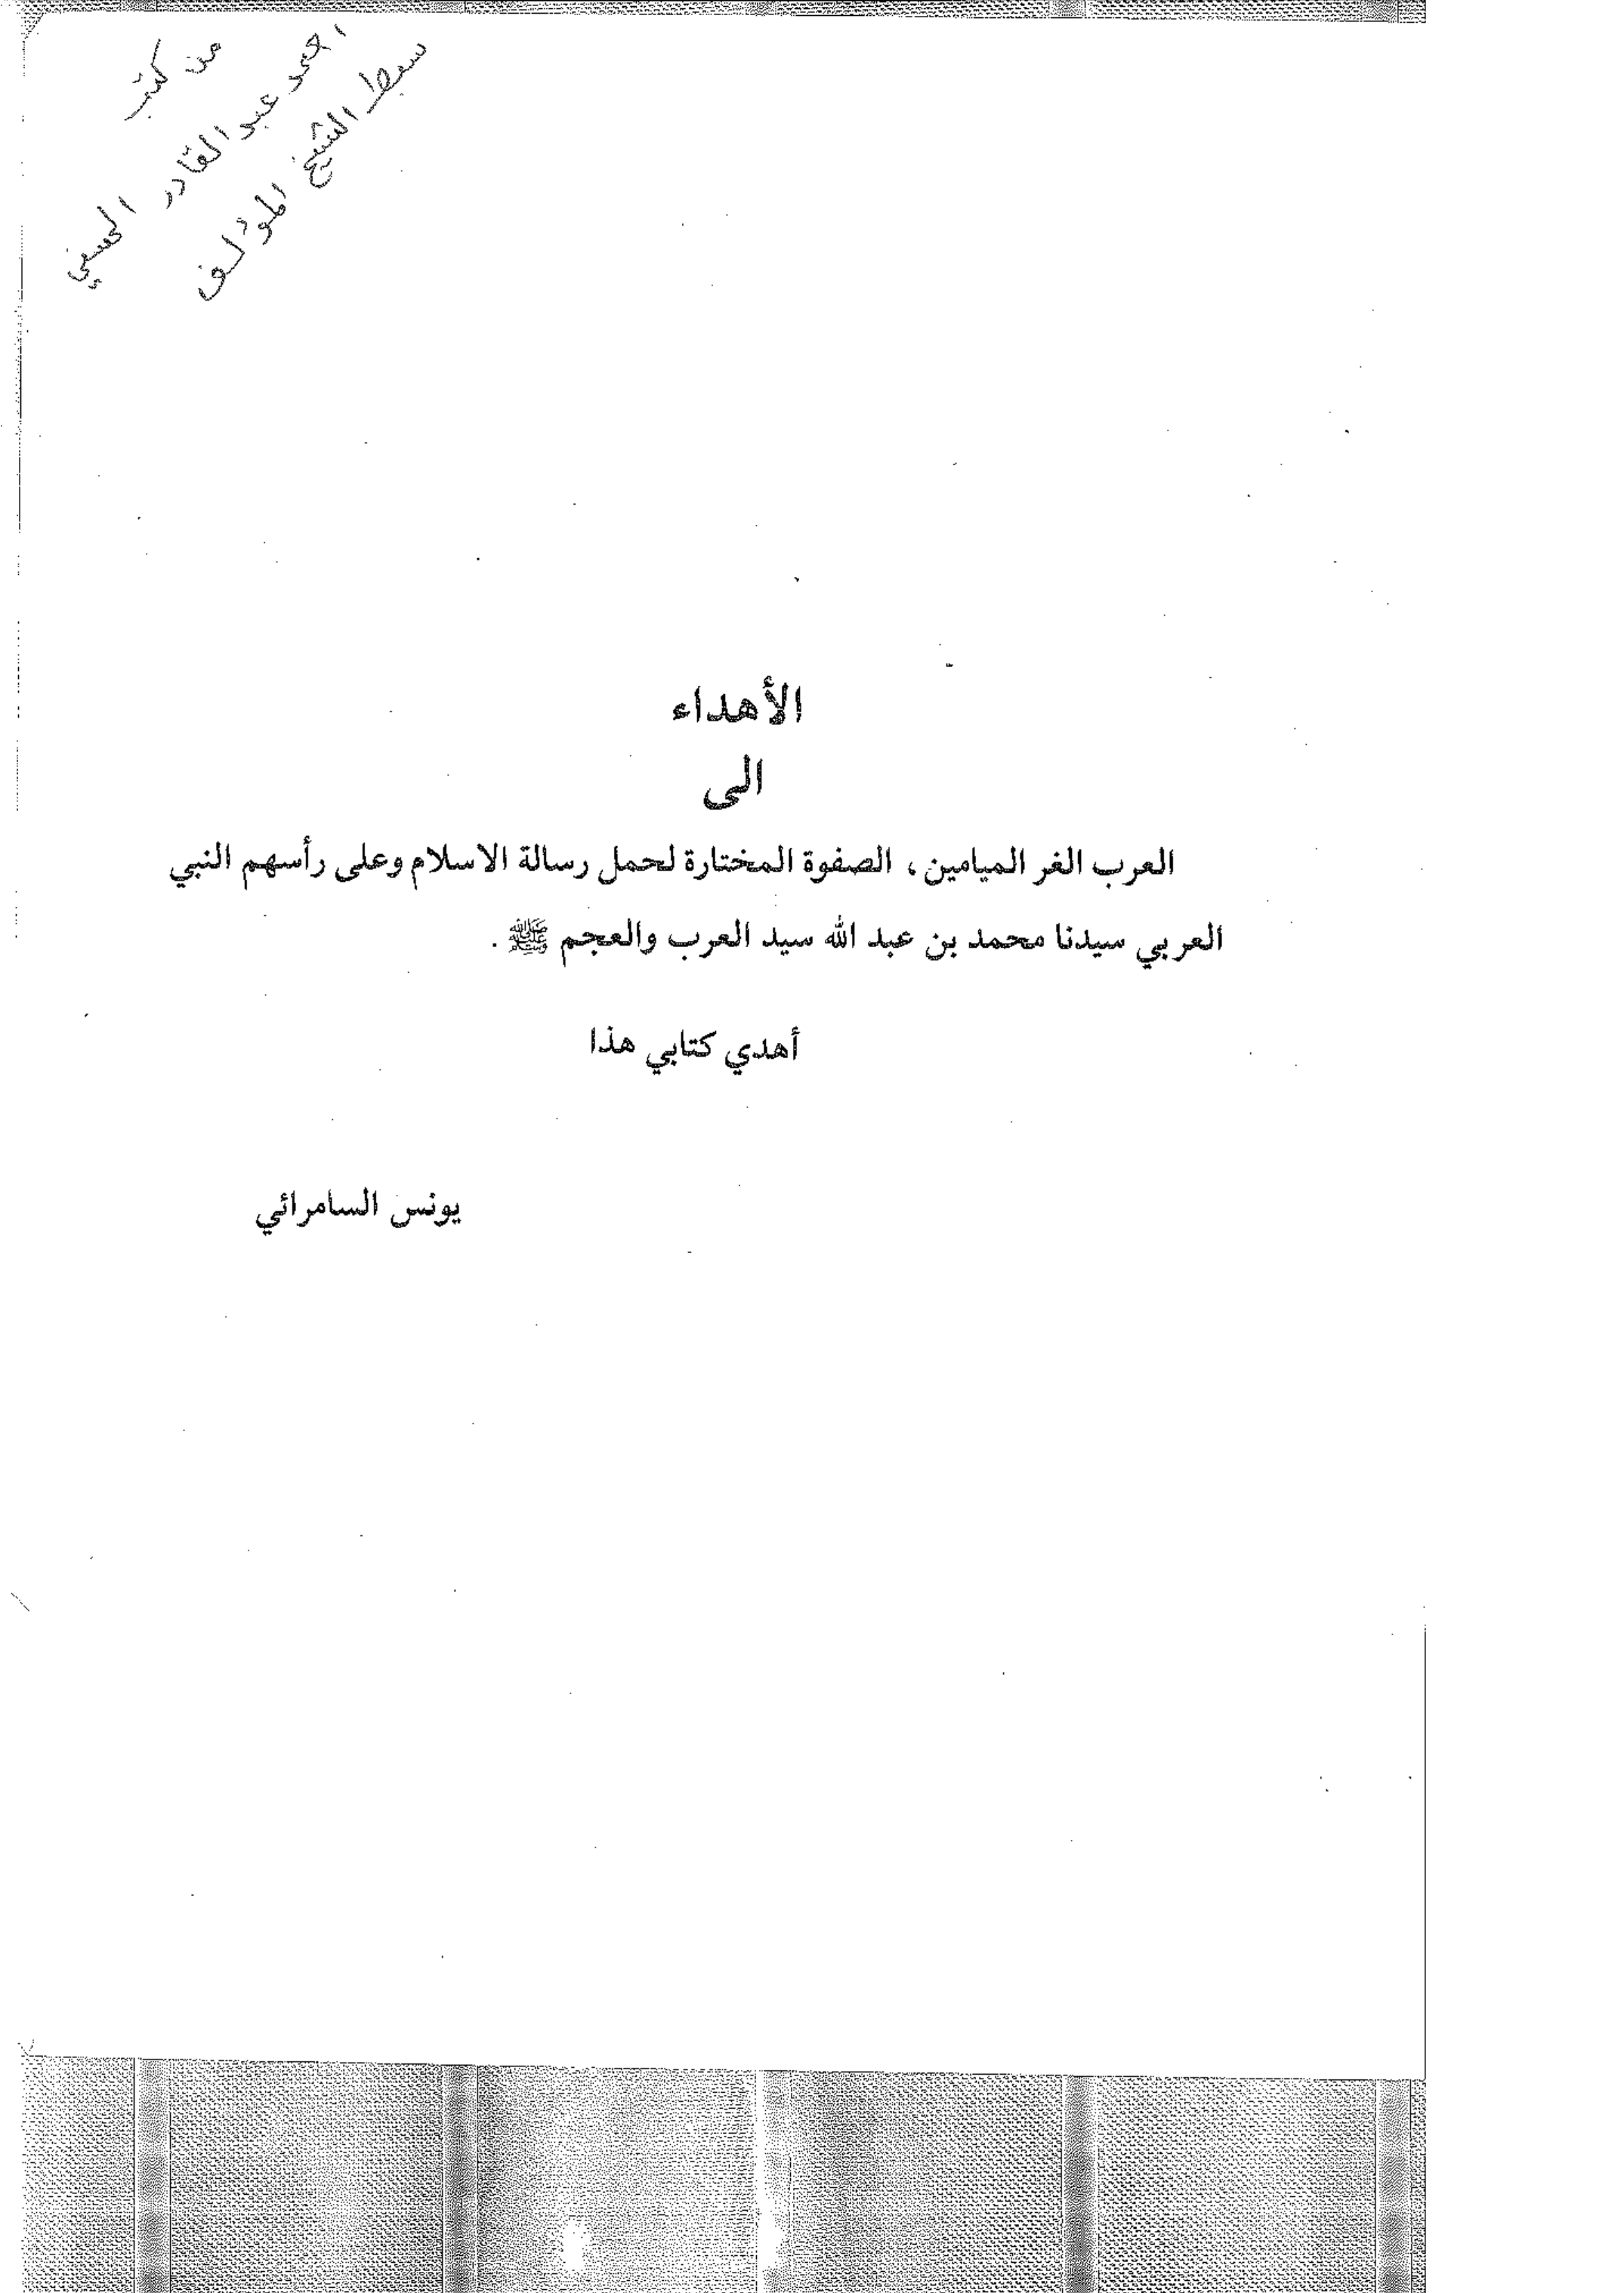 من كتب
احمد عبد القادر الحسني
سبط الشيخ المؤلف
الأهداء
الى
العرب الغر الميامين، الصفوة المختارة لحمل رسالة الاسلام وعلى رأسهم النبي
العربي سيدنا محمد بن عبد الله سيد العرب والعجم ﷺ .
أهدي كتابي هذا
يونس السامرائي